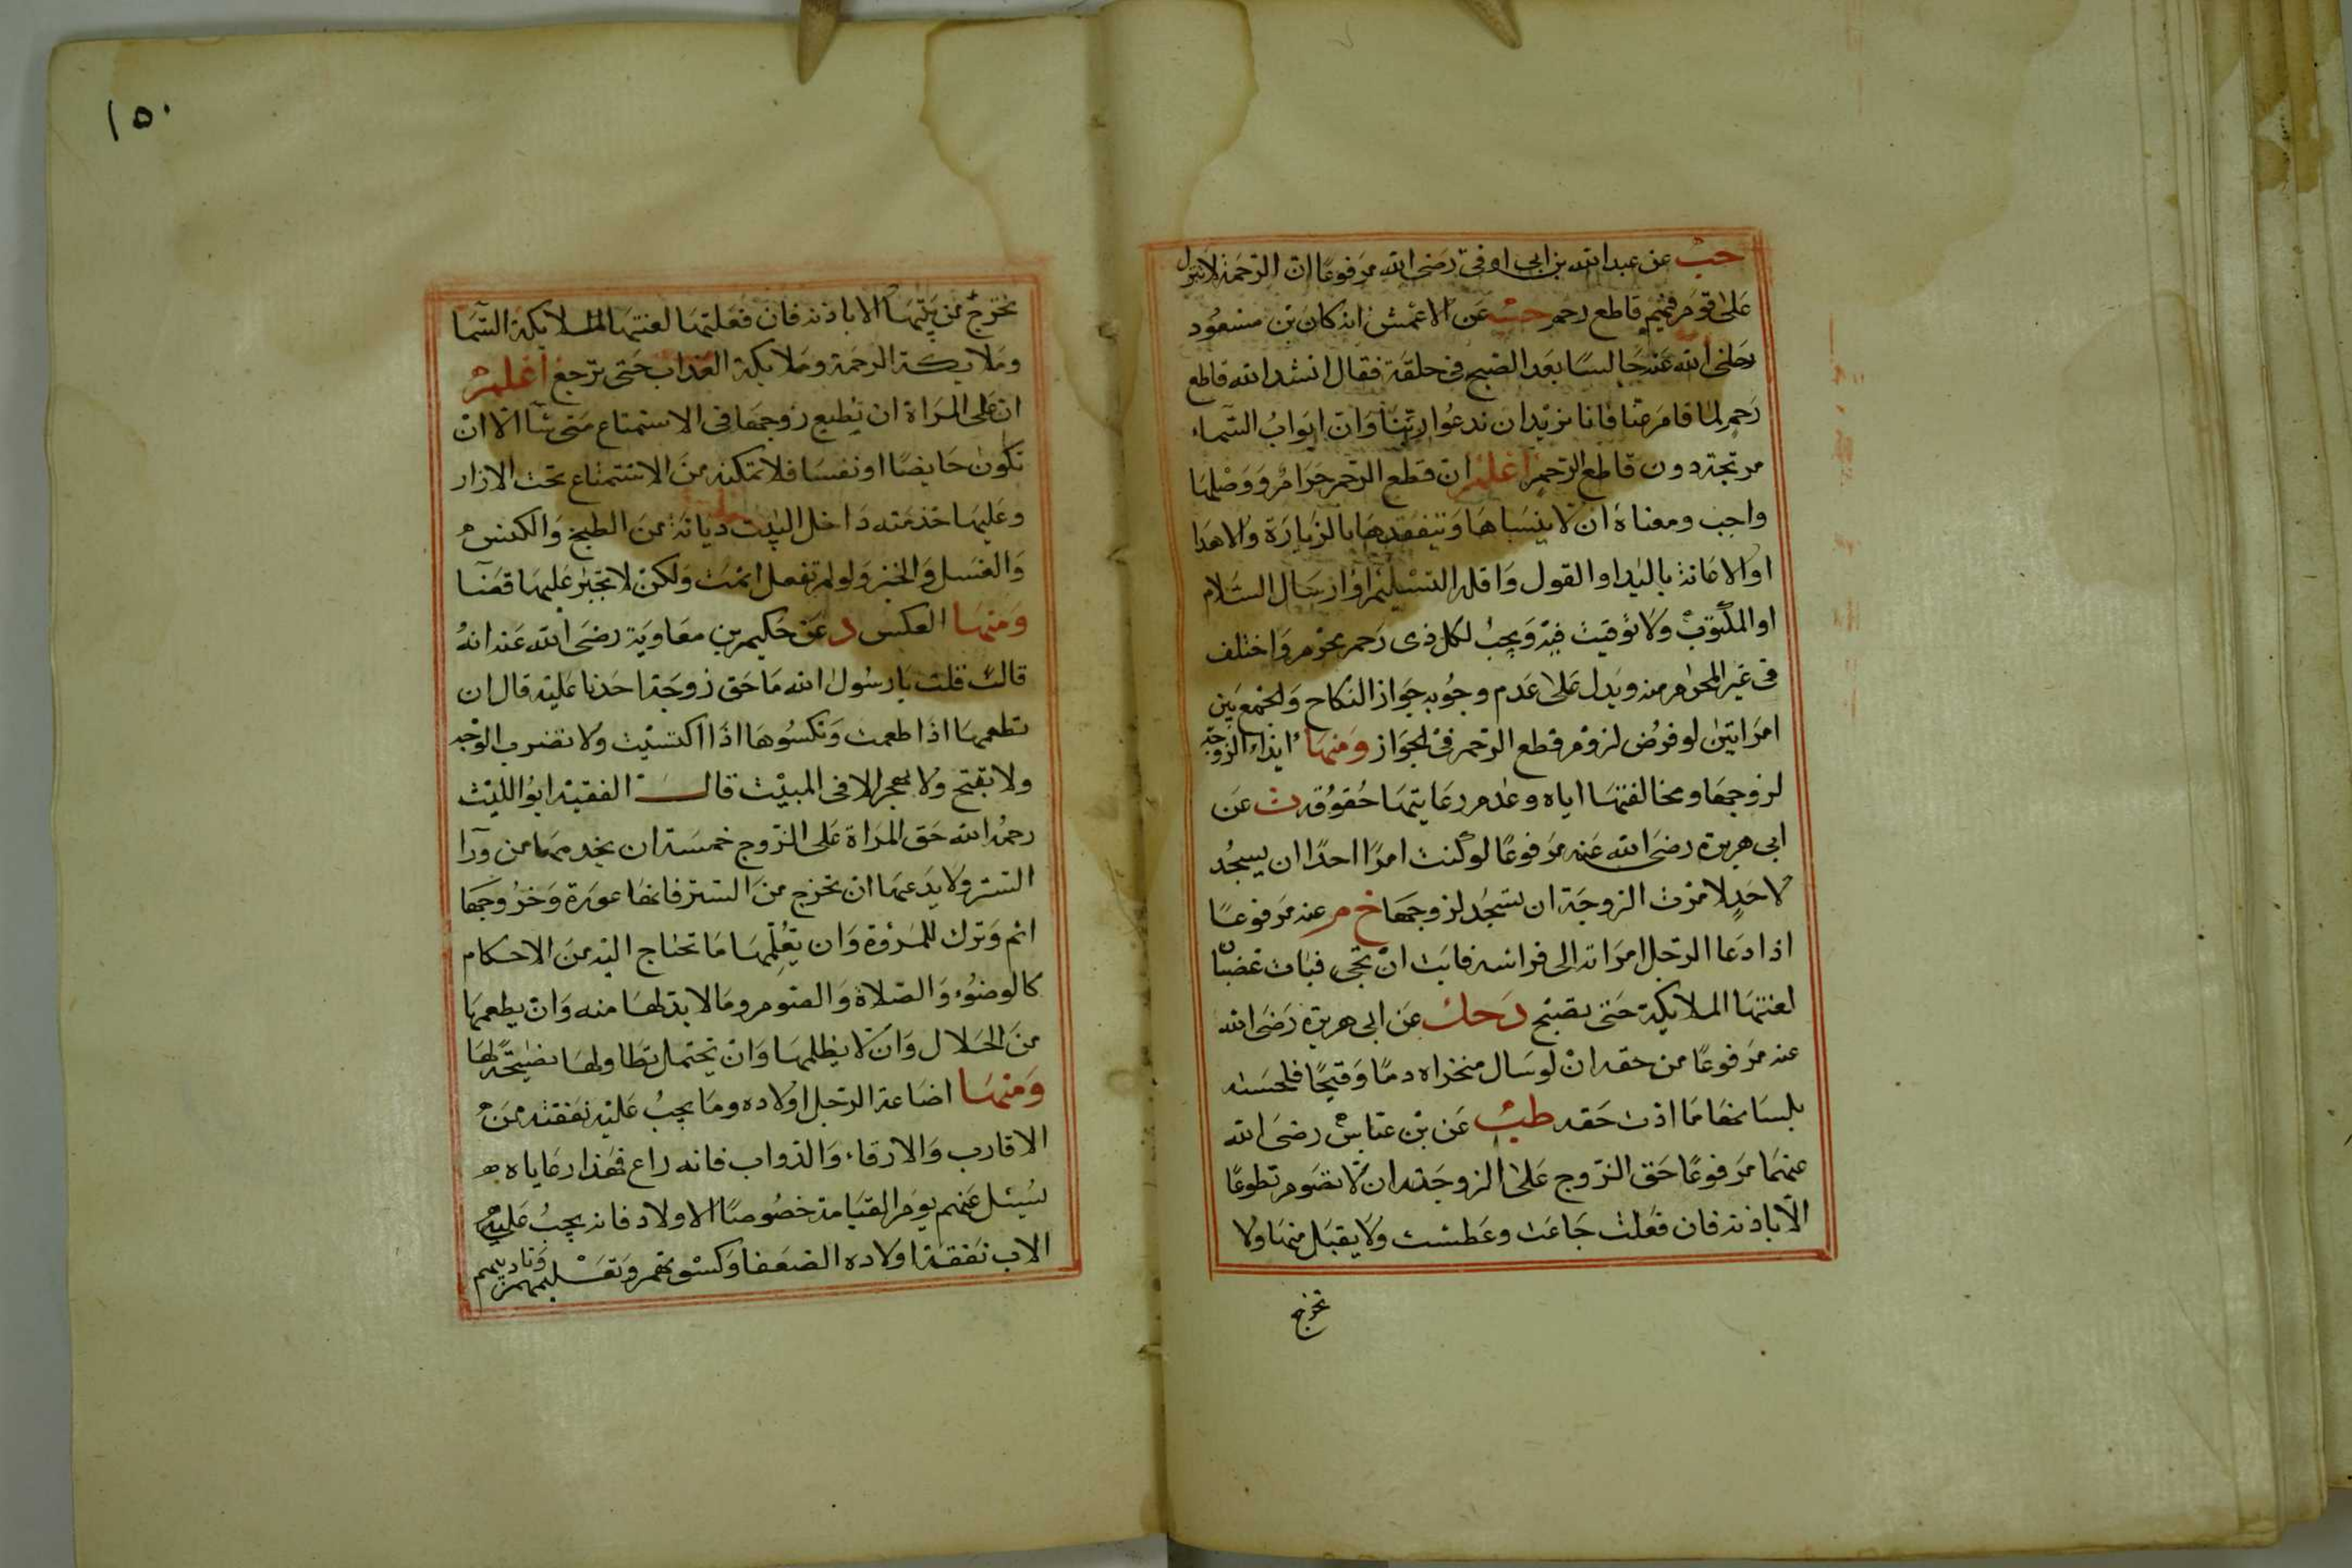 حب عن عبد الله بن ابى اوفى رضى الله مرفوعًا ان الرحمة لا تنزل
على قوم فيهم قاطع رحم حب عن الاعمش انه كان بن مسعود
رضى الله عنه جالسًا بعد الصبح فى حلقة فقال انشد الله قاطع
رحم لما قام عنا فانا نريد ان ندعوا ربنا وان ابواب السماء
مرتجة دون قاطع الرحم اعلم ان قطع الرحم حرام ووصلها
واجب ومعناه ان لا ينساها ويتفقدها بالزيارة والاهدا
او الاعانة باليد او القول واقله التسليم او ارسال السلام
او المكتوب ولا توقيت فيه ويجب لكل ذى رحم محرم واختلف
فى غير المحرم منه ويدل على عدم وجوبه جواز النكاح والجمع بين
امراتين لو فرض لزوم قطع الرحم فى الجواز ومنها ايذاء الزوجة
لزوجها ومخالفتها اياه وعدم رعايتها حقوقه ت عن
ابى هريرة رضى الله عنه مرفوعًا لو كنت امرًا احدًا ان يسجد
لاحد لامرت الزوجة ان تسجد لزوجها خ م عنه مرفوعًا
اذا دعا الرجل امراته الى فراشه فابت ان تجى فبات غضبان
لعنتها الملايكة حتى تصبح ز حك عن ابى هريرة رضى الله
عنه مرفوعًا من حقه ان لو سال منخراه دمًا وقيحًا فلحسته
بلسانها ما ادت حقه طب عن بن عباس رضى الله
عنهما مرفوعًا حق الزوج على الزوجة ان لا تصوم تطوعًا
الا باذنه فان فعلت جاعت وعطشت ولا يقبل منها ولا
تخرج
١٥٠
تخرج من بيتها الا باذنه فان فعلتها لعنتها الملايكة السما
وملايكة الرحمة وملايكة العذاب حتى ترجع اعلم
ان على المراة ان تطيع زوجها فى الاستمتاع متى شا الا ان
تكون حايضًا او نفسا فلا تمكنه من الاستمتاع تحت الازار
وعليها خدمته داخل البيت ديانة من الطبخ والكنس
والغسل والخبز ولو لم تفعل اثمت ولكن لا تجبر عليها قضا
ومنها العكس د عن حكيم بن معاوية رضى الله عنه انه
قالت قلت يا رسول الله ما حق زوجة احدنا عليه قال ان
تطعمها اذا طعمت وتكسوها اذا اكتسيت ولا تضرب الوجه
ولا تقبح ولا تهجر الا فى المبيت قال الفقيه ابو الليث
رحمه الله حق المراة على الزوج خمسة ان يخدمها من ورا
الستر ولا يدعها ان تخرج من الستر فانها عورة وخروجها
اثم وترك للمروة وان يعلمها ما تحتاج اليه من الاحكام
كالوضوء والصلاة والصوم وما لا بد لها منه وان يطعمها
من الحلال وان لا يظلمها وان يحتمل تطاولها نصيحة لها
ومنها اضاعة الرجل اولاده وما يجب عليه نفقته من
الاقارب والارقاء والدواب فانه راع فهذا رعاياه
سيئل عنهم يوم القيامة خصوصًا الاولاد فانه يجب على
الاب نفقة اولاده الضعفا وكسوتهم وتعليمهم وتاديبهم